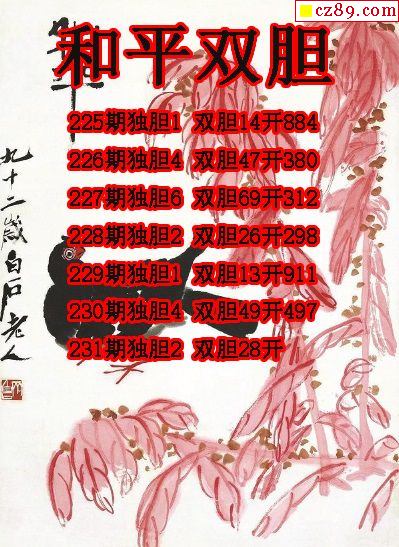 cz89.com
和平双胆
225期独胆1 双胆14开884
226期独胆4 双胆47开380
227期独胆6 双胆69开312
228期独胆2 双胆26开298
229期独胆1 双胆13开911
230期独胆4 双胆49开497
231期独胆2 双胆28开
九十二岁白石老人